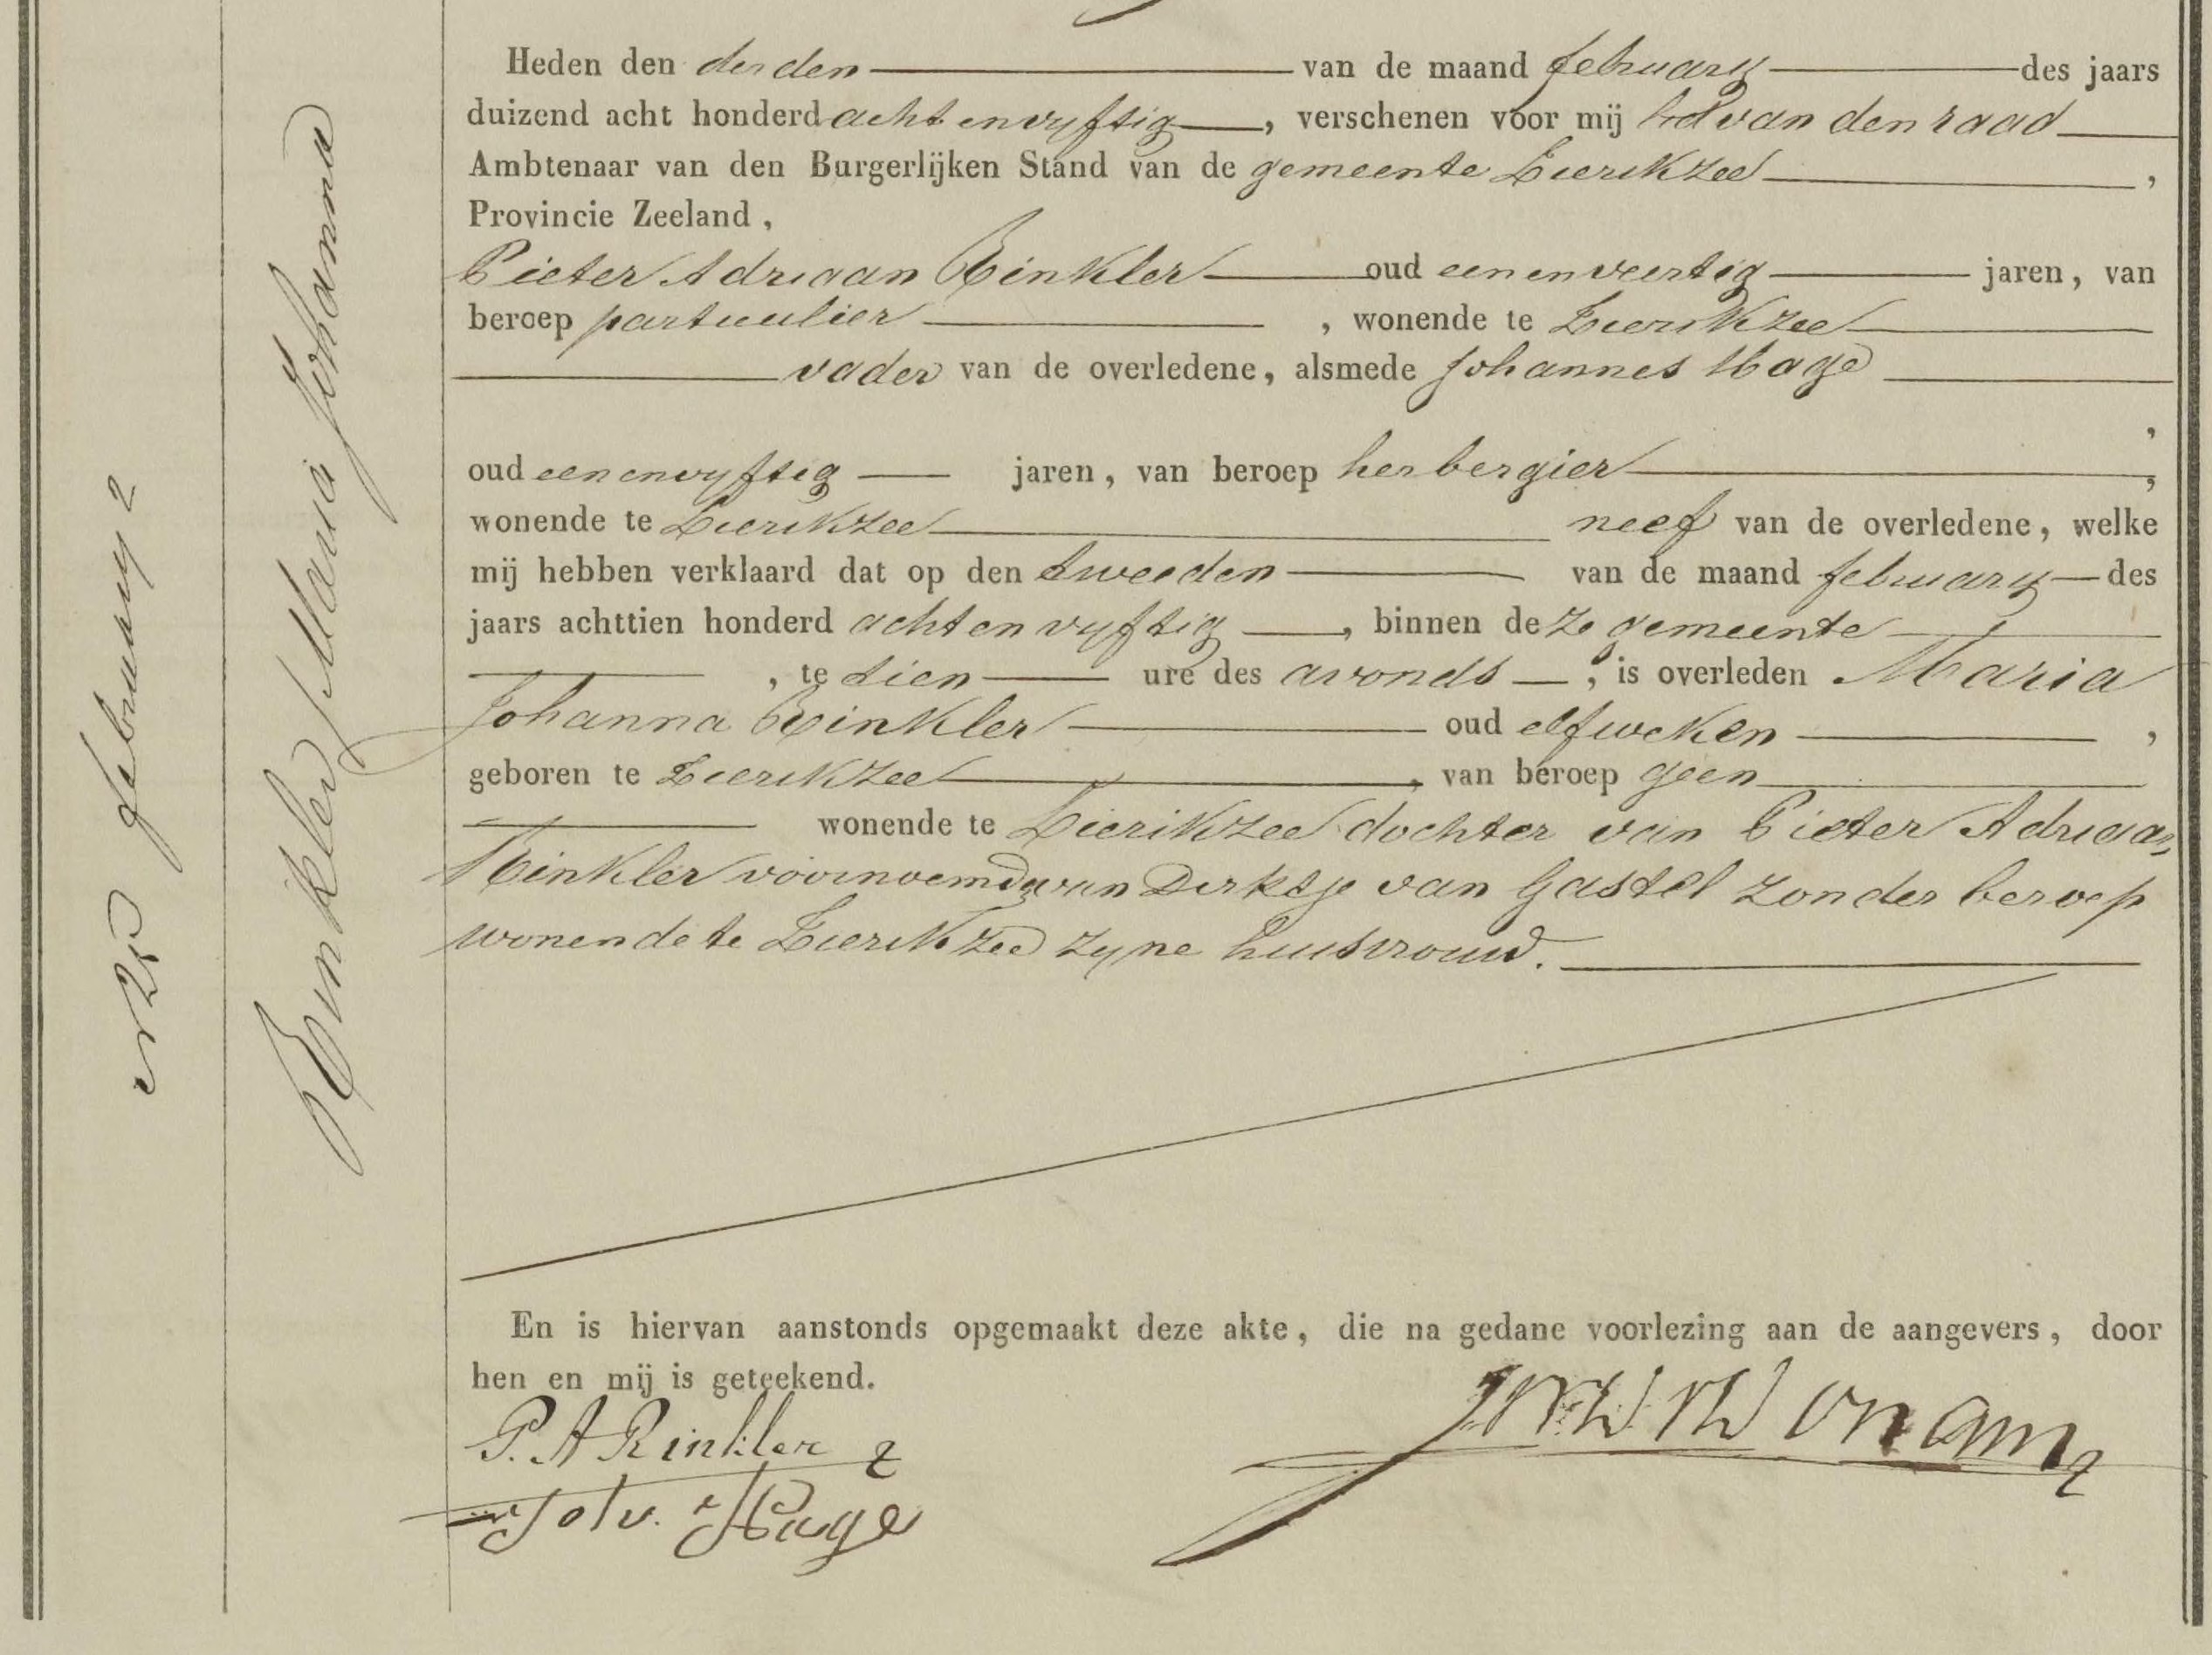 N 25 february 2
Rinkler Maria Johanna
Heden den derden van de maand february des jaars
duizend acht honderd acht en vyftig, verschenen voor mij Lid van den raad
Ambtenaar van den Burgerlijken Stand van de gemeente Zierikzee,
Provincie Zeeland,
Pieter Adriaan Rinkler oud een en veertig jaren, van
beroep particulier, wonende te Zierikzee
vader van de overledene, alsmede Johannes Hage
,
oud een en vyftig jaren, van beroep herbergier,
wonende te Zierikzee neef van de overledene, welke
mij hebben verklaard dat op den tweeden van de maand february des
jaars achttien honderd acht en vyftig, binnen deze gemeente
, te tien ure des avonds, is overleden Maria
Johanna Rinkler oud elf weken,
geboren te Zierikzee, van beroep geen
wonende te Zierikzee dochter van Pieter Adriaan
Rinkler voornoemd van Dirktje van Gastel zonder beroep
wonende te Zierikzee zyne huisvrouw.
En is hiervan aanstonds opgemaakt deze akte, die na gedane voorlezing aan de aangevers, door
hen en mij is geteekend.
P. A Rinkler
Joh. Hage